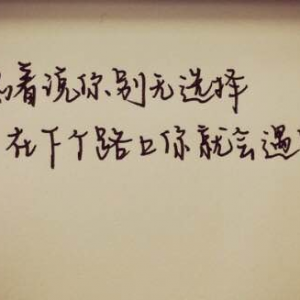 着说你别无选择
在下个路口你就会遇